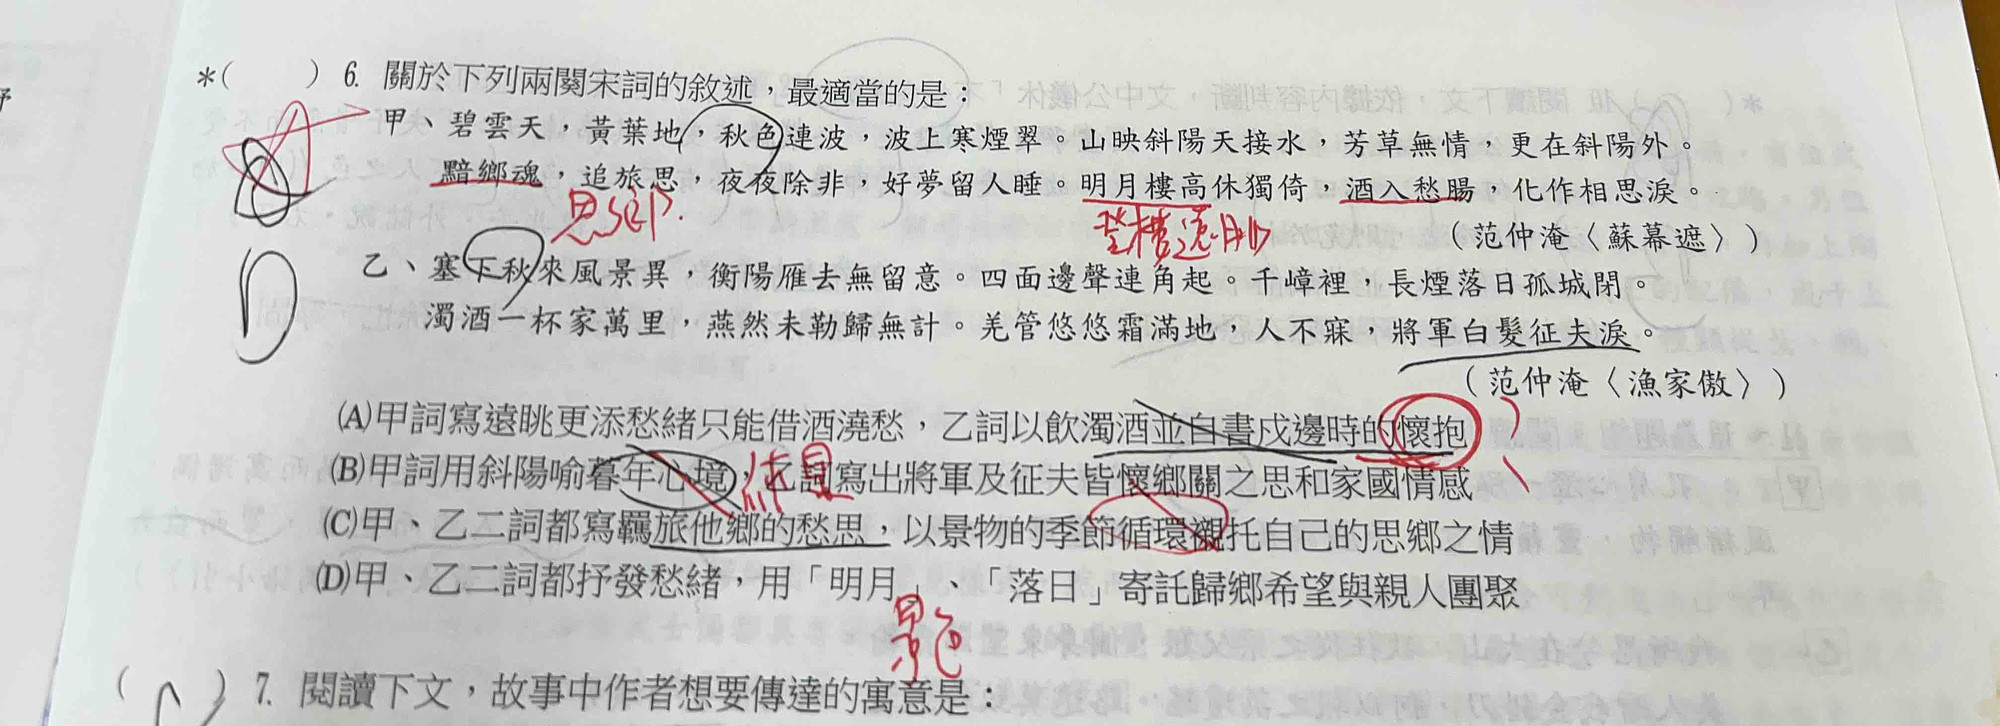 *(　　) 6. 關於下列兩闋宋詞的敘述，最適當的是：
甲、碧雲天，黃葉地，秋色連波，波上寒煙翠。山映斜陽天接水，芳草無情，更在斜陽外。
黯鄉魂，追旅思，夜夜除非，好夢留人睡。明月樓高休獨倚，酒入愁腸，化作相思淚。
思鄉
登樓遠眺
（范仲淹〈蘇幕遮〉）
乙、塞下秋來風景異，衡陽雁去無留意。四面邊聲連角起。千嶂裡，長煙落日孤城閉。
濁酒一杯家萬里，燕然未勒歸無計。羌管悠悠霜滿地，人不寐，將軍白髮征夫淚。
（范仲淹〈漁家傲〉）
(A)甲詞寫遠眺更添愁緒只能借酒澆愁，乙詞以飲濁酒並自書戍邊時的懷抱
(B)甲詞用斜陽喻暮年心境，乙詞寫出將軍及征夫皆懷鄉關之思和家國情感
(C)甲、乙二詞都寫羈旅他鄉的愁思，以景物的季節循環襯托自己的思鄉之情
(D)甲、乙二詞都抒發愁緒，用「明月」、「落日」寄託歸鄉希望與親人團聚
景色
(　　) 7. 閱讀下文，故事中作者想要傳達的寓意是：